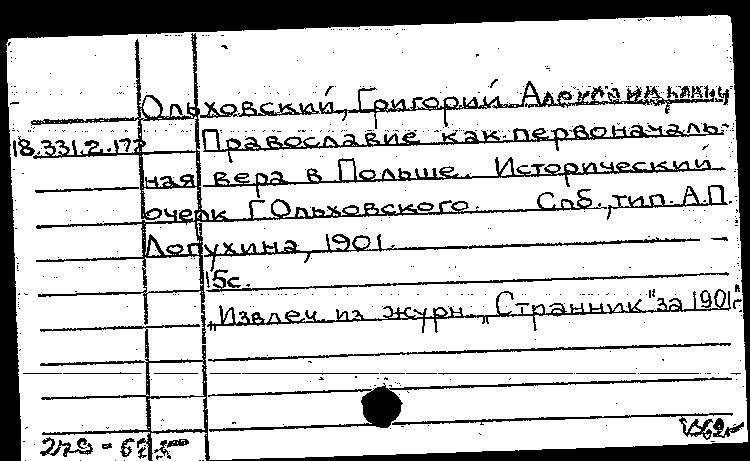 Ольховский, Григорий Александрович
18.331.2.172 Православие как первоначаль-
ная вера в Польше. Исторический
очерк Г Ольховского. Спб., тип. А.П.
Лопухина, 1901.
15с.
„Извлеч. из журн. „Странник" за 1901г."